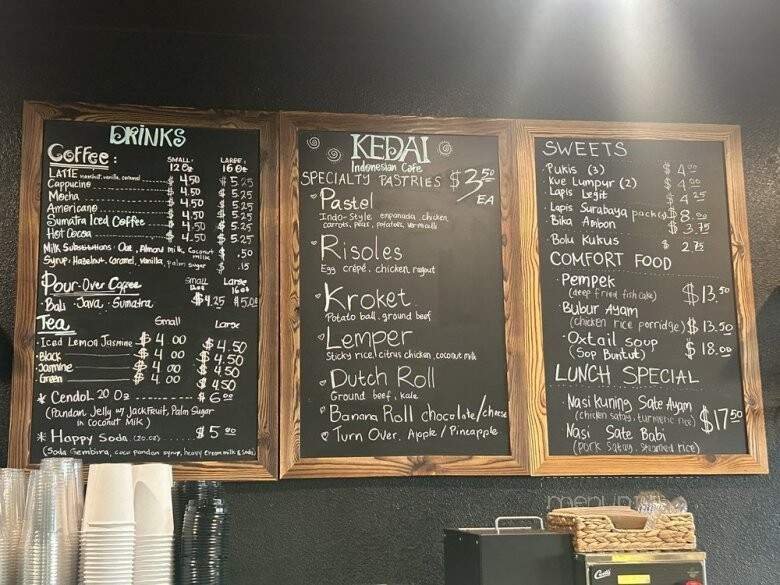 DRINKS
Coffee: SMALL: 12 Oz LARGE: 16 Oz
LATTE hazelnut, vanilla, caramel $ 4.50 $ 5.25
Cappucino $ 4.50 $ 5.25
Mocha $ 4.50 $ 5.25
Americano $ 4.50 $ 5.25
Sumatra Iced Coffee $ 4.50 $ 5.25
Hot Cocoa $ 4.50 $ 5.25
Milk Substitutions: Oat, Almond milk, Coconut milk $ .50
Syrup: Hazelnut, Caramel, Vanilla, palm sugar $ .15
Pour-Over Coffee Small 12oz Large 16oz
Bali · Java · Sumatra $4.25 $5.00
Tea Small Large
· Iced Lemon Jasmine $ 4 00 $4.50
· Black $ 4 00 $4.50
· Jasmine $ 4 00 $4.50
· Green $ 4 00 $4.50
* Cendol 20 Oz $ 6 00
(Pandan Jelly w/ JackFruit, Palm Sugar
in Coconut Milk)
* Happy Soda (20 oz) $ 5 00
(Soda Gembira, coco pandan syrup, heavy cream milk & Soda)
KEDAI
Indonesian Cafe
SPECIALTY PASTRIES $3.50 EA
Pastel
Indo-Style empanada, chicken,
carrots, peas, potatoes, vermicelli
Risoles
Egg crêpe, chicken ragout
Kroket
Potato ball, ground beef
Lemper
Sticky rice, citrus chicken, coconut milk
Dutch Roll
Ground beef, kale
Banana Roll chocolate/cheese
Turn Over. Apple / Pineapple
SWEETS
· Pukis (3) $ 4 00
· Kue Lumpur (2) $ 4 00
· Lapis Legit $ 4 25
· Lapis Surabaya pack(3) $ 8 00
· Bika Ambon $ 3.75
· Bolu Kukus $ 2.75
COMFORT FOOD
· Pempek $13.50
(deep fried fish cake)
· Bubur Ayam
(chicken rice porridge) $13.50
· Oxtail soup $18.00
(Sop Buntut)
LUNCH SPECIAL
· Nasi Kuning Sate Ayam
(chicken satay, turmeric rice) $17.50
· Nasi Sate Babi
(Pork satay, steamed rice)
Curtis